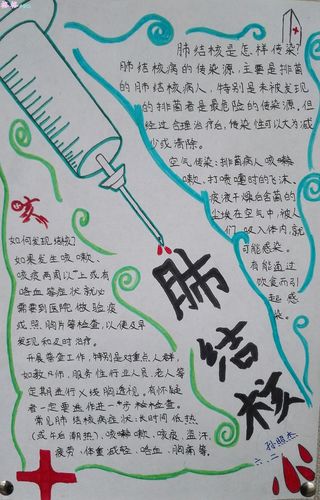 肺结核是怎样传染?
肺结核病的传染源,主要是排菌
的肺结核病人,特别是未被发现
的排菌者是最危险的传染源,但
经过合理治疗后,传染性可以大为减
少或清除。
空气传染:排菌病人咳嗽
嗽、打喷嚏时的飞沫、
痰液干燥后含菌的
尘埃在空气中,被人
们吸入体内,就
可能感染。
有能通过
饮食而引
起感
染。
咳
如何发现结核?
如果发生咳嗽、
咳痰两周以上或有
咯血等症状就必
需要到医院做验痰
或照胸片等检查,以便及早
发现和及时治疗。
开展普查工作,特别是对重点人群,
如教师,服务性行业人员,老人等
定期进行X线胸透视。有怀疑
者一定要进作进一步检检查。
常见肺结核病症状:长时间低热
(或午后潮热)、咳嗽嗽、咳痰、盗汗、
疲劳、体重减轻、咯血、胸痛等。
肺
结
核
六、二